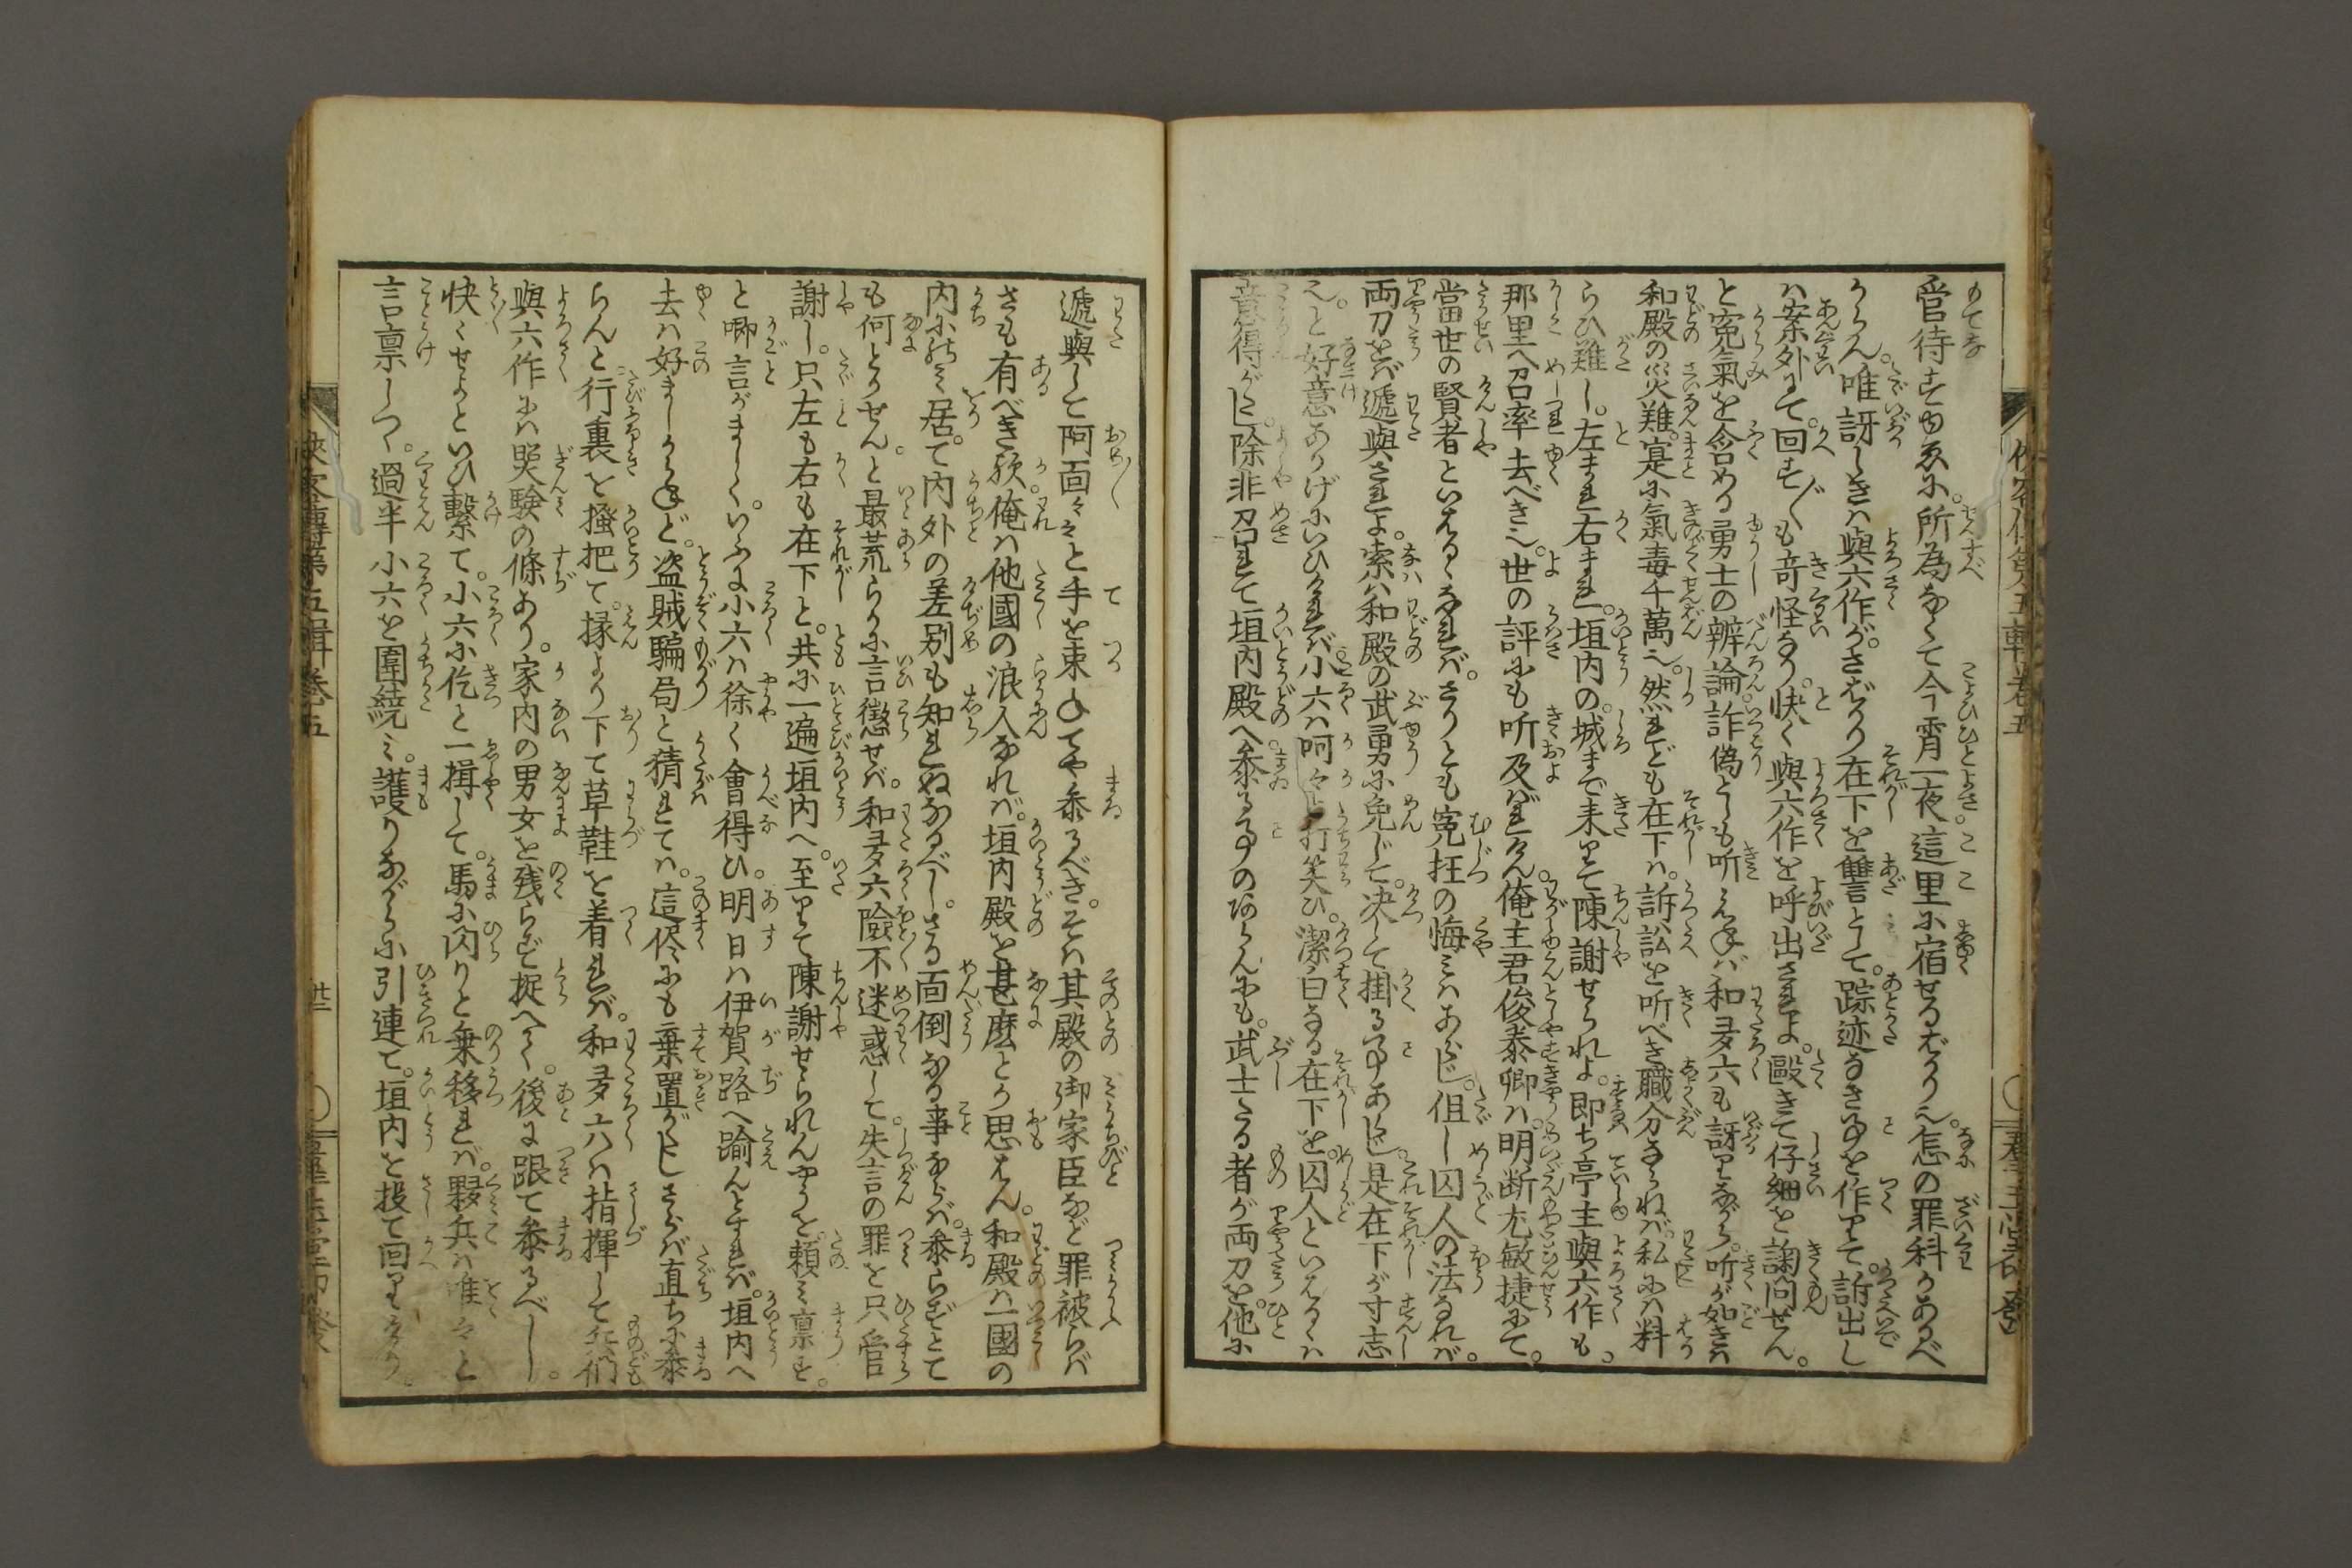 管待さゆゑに。所為なくて今宵一夜。這里に宿せるばかり也。怎の罪科かあるべ
からん。唯訝しきハ與六作が。さばかり在下を讐として。踪迹なき事を作りて。訴出し
ハ案外にて。回す〴〵も奇怪なり。快く與六作を呼出されよ。敺きて仔細を鞫問せん。
と寃氣を含める勇士の辨論。詐偽としも听えねば和多六も訝りながら。听が如きハ
和殿の災難。寔に氣毒千萬也。然れども在下ハ。訴訟を听べき職分ならねば。私にハ料
らひ難し。左まれ右まれ。垣内の。城まで来りて陳謝せられよ。即ち亭主與六作も。
那里へ召率去べき也。世の評にも听及ばれけん。俺主君俊泰卿ハ。明断尤敏捷にて。
當世の賢者といはるゝなれば。さりとも寃枉の悔ミハあらじ。但し囚人の法なれば。
両刀をば遞與されよ。索ハ和殿の武勇に免じて。决して掛る事あらじ。是在下が寸志
也。と好意ありげにいひければ小六ハ呵々と打笑ひ。潔白なる在下を。囚人といはるゝハ
意得がたし。除非召れて垣内殿へ参る事のあらんにも。武士たる者が両刀を。他に
遞與して阿面々々と手を束ねてや参るべき。そハ其殿の御家臣など罪被らば
さも有べき歟。俺ハ他國の浪人なれば。垣内殿を甚麼とか思はん。和殿ハ一國の
内にのミ居て。内外の差别も知れぬなるべし。さる面倒なる事ならば。参らずとて
も何とかせん。と最荒らかに言懲せば。和多六險不迷惑して。失言の罪を只管
謝し。只左も右も在下と。共に一遍垣内へ。至りて陳謝せられんやうを。頼ミ稟す。
と唧言がましく。いふに小六ハ徐々會得ひ。明日ハ伊賀路へ踰んとすれば。垣内へ
去ハ好ましからねど。盗賊騙局と猜れてハ。這侭にも棄置がたしさらば直ちに参
らんと。行裏を搔把て。縁より下て草鞋を着れば。和多六ハ指揮して兵們
與六作にハ哭験の條あり。家内の男女を残らず捉へて。後に跟て参るべし。
快くせよといひ繋て。小六に仡と一揖して。馬に閃りと乗移れば。夥兵ハ唯々と
言稟しつゝ。過半小六を圍繞ミ。護りながらに引連て。垣内を投て回りけり。